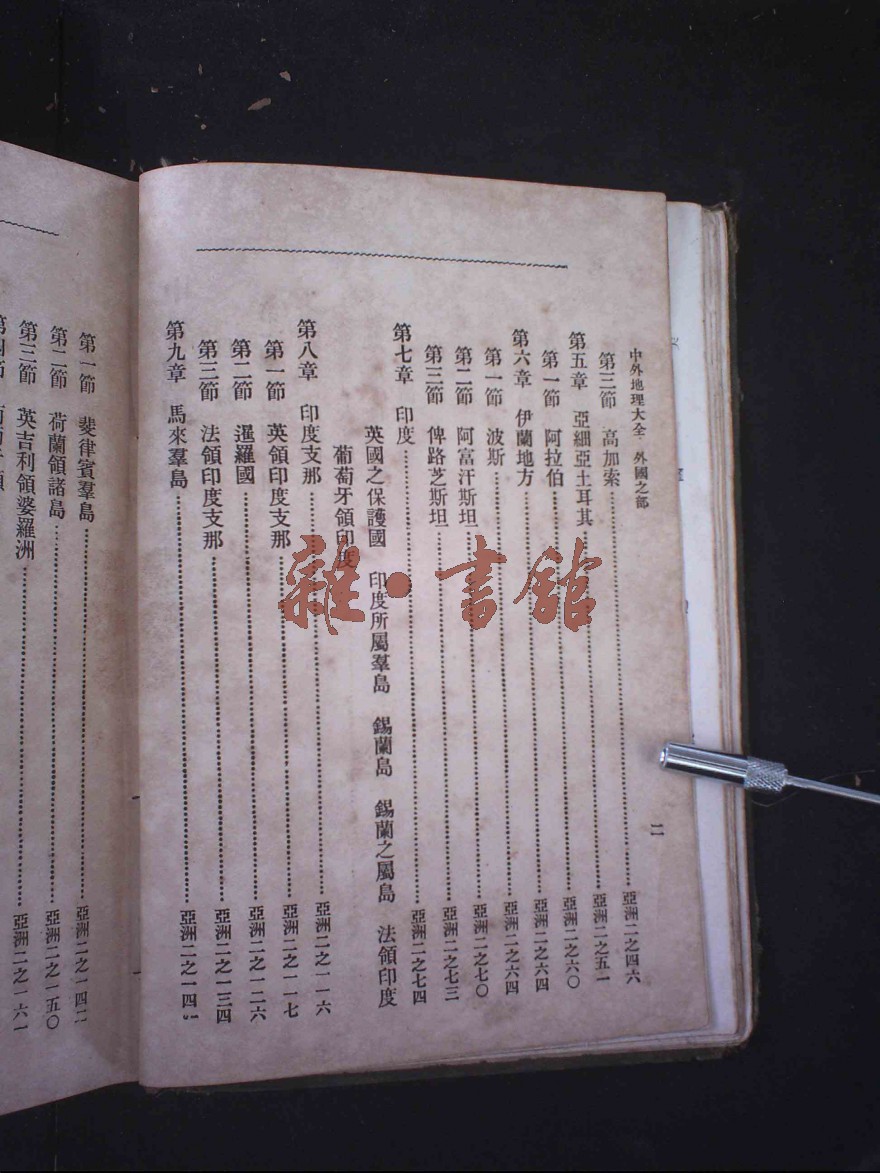 中外地理大全 外國之部
二
第三節 高加索 亞洲二之四六
第五章 亞細亞土耳其 亞洲二之五一
第一節 阿拉伯 亞洲二之六〇
第六章 伊蘭地方 亞洲二之六四
第一節 波斯 亞洲二之六四
第二節 阿富汗斯坦 亞洲二之七〇
第三節 俾路芝斯坦 亞洲二之七三
第七章 印度 亞洲二之七四
英國之保護國 印度所屬羣島 錫蘭島 錫蘭之屬島 法領印度
葡萄牙領印度
第八章 印度支那 亞洲二之一一六
第一節 英領印度支那 亞洲二之一一七
第二節 暹羅國 亞洲二之一二六
第三節 法領印度支那 亞洲二之一三四
第九章 馬來羣島 亞洲二之一四
第一節 斐律賓羣島 亞洲二之一四二
第二節 荷蘭領諸島 亞洲二之一五〇
第三節 英吉利領婆羅洲 亞洲二之一六一
雜·書館